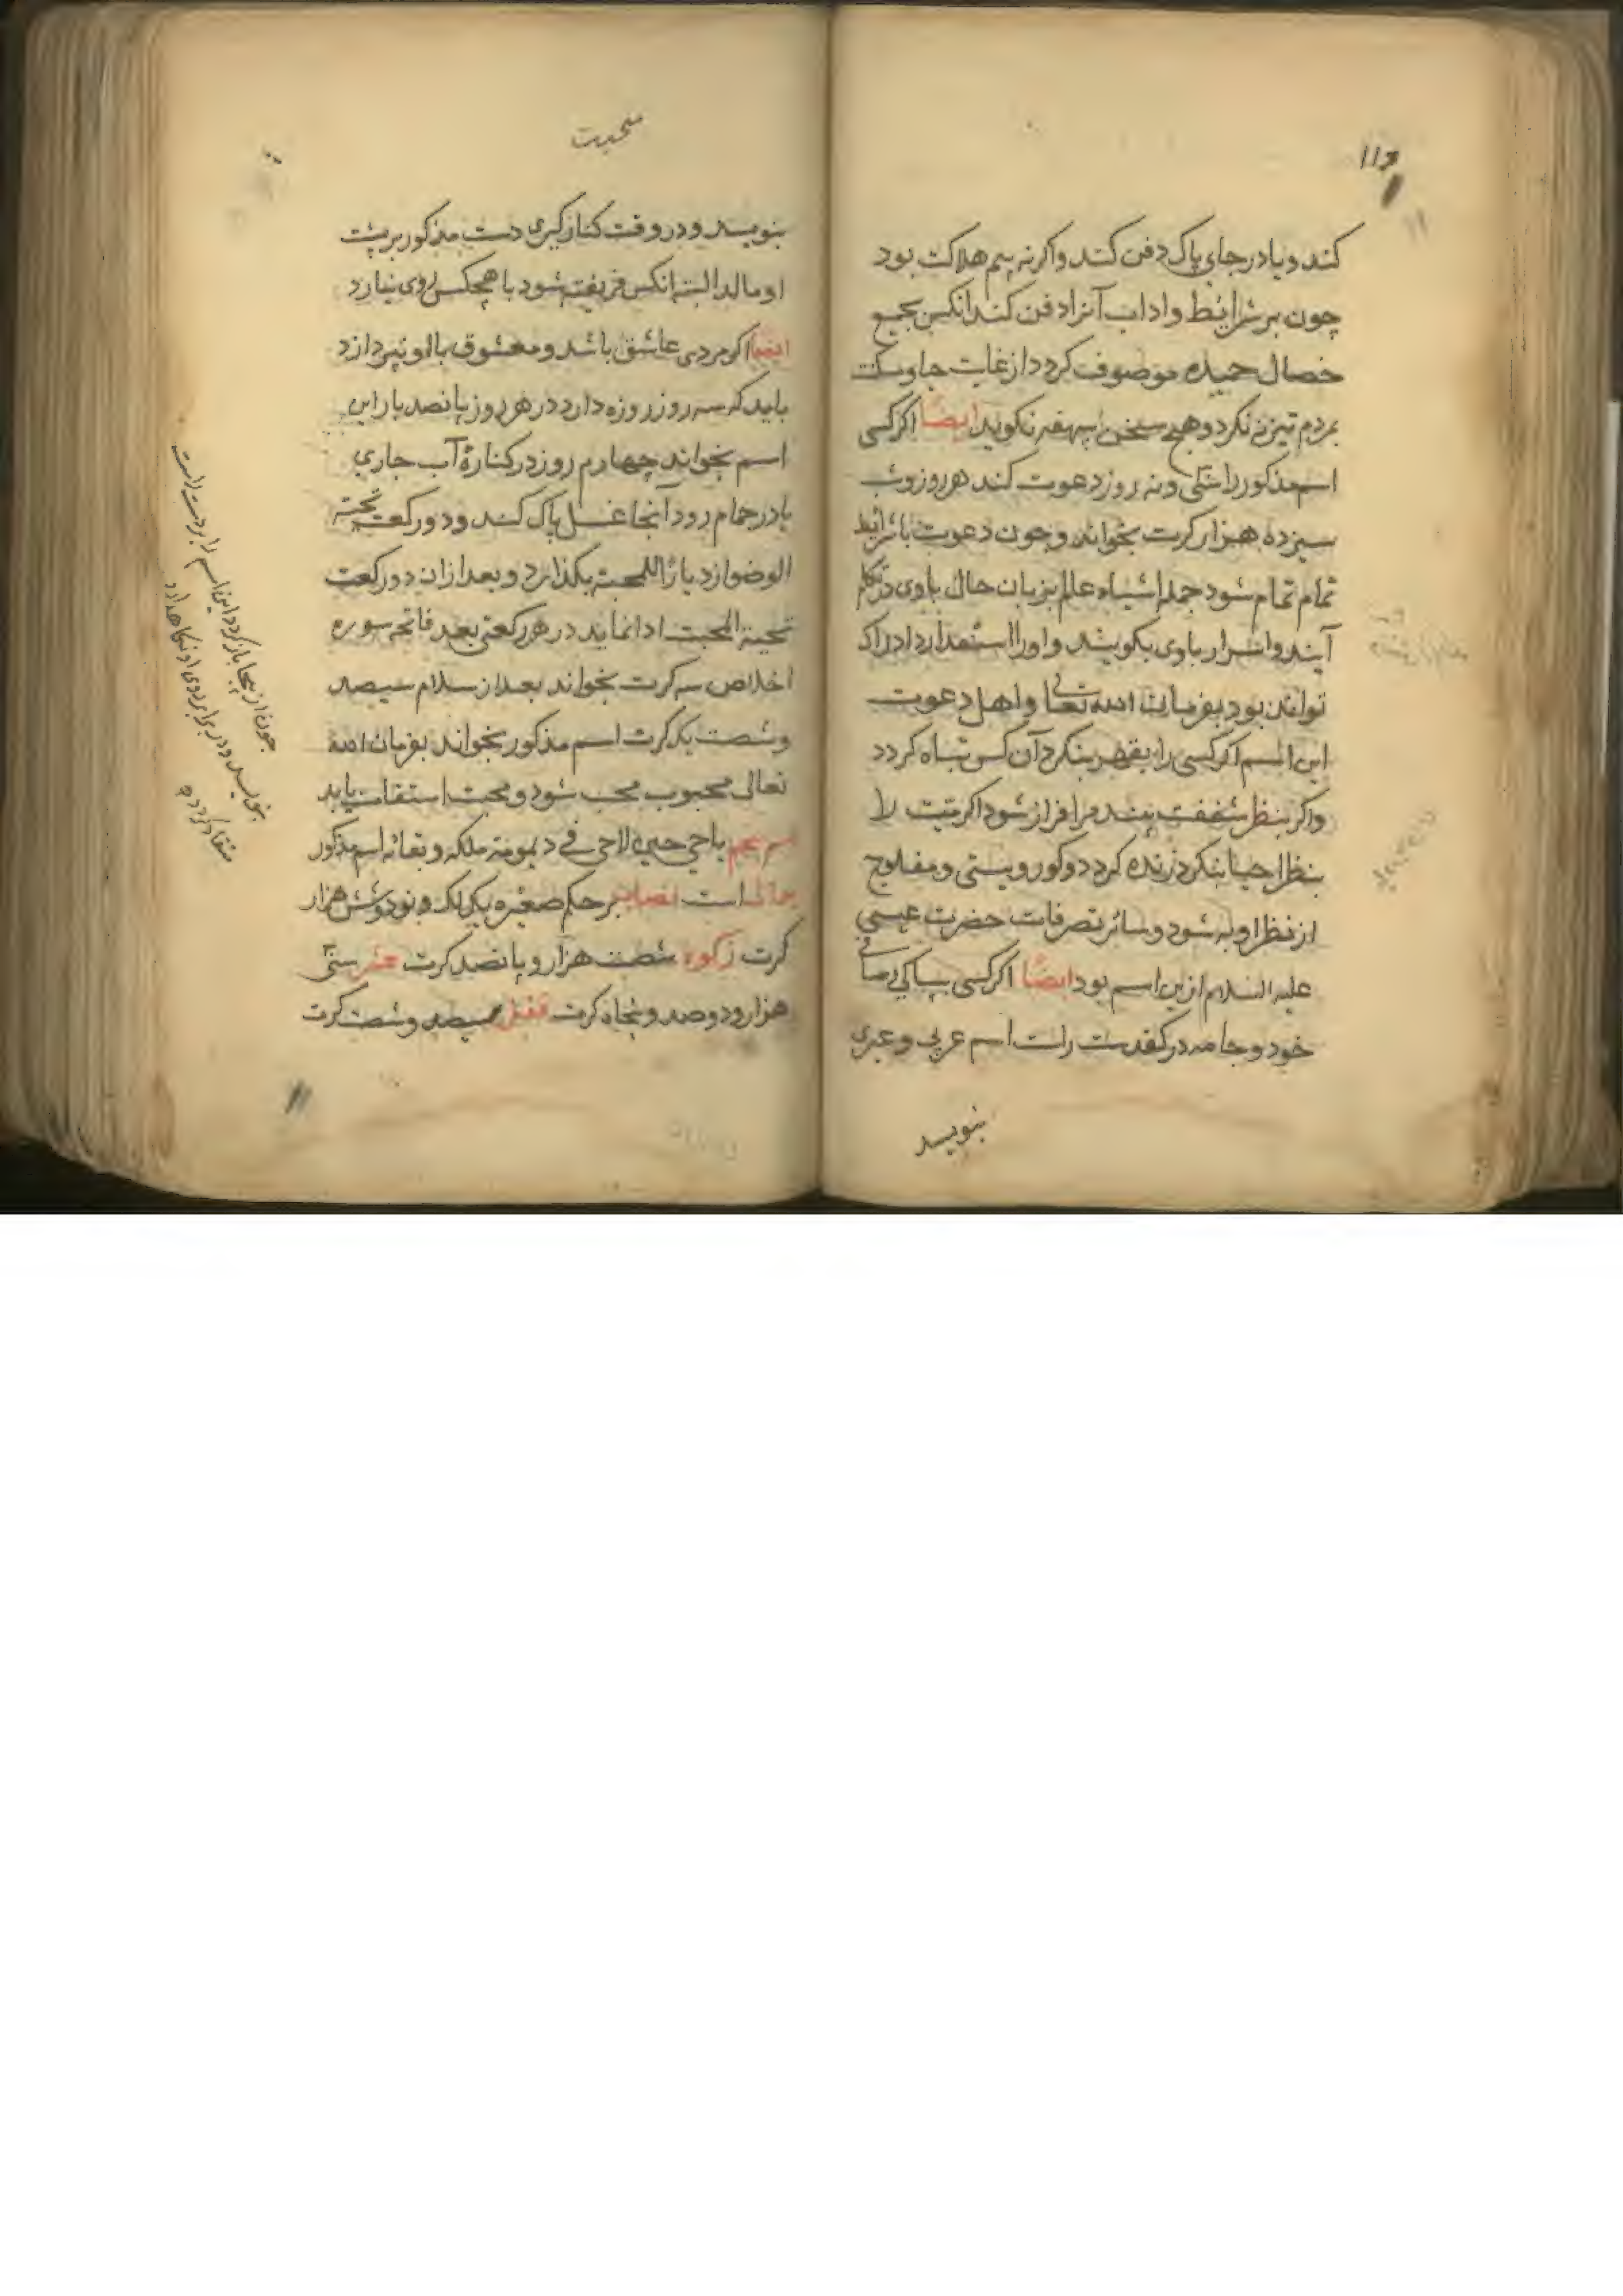 کند و یا در جای پاک دفن کند و اکر نه بیم هلاکت بود
چون بر شرایط و اداب آنرا دفن کند انکس بجمیع
خصال حمیده موصوف کردد از غایت
بمردم تیزی نکرد و هیچ سخن نکوید ایضاً اکر کسی
اسم مذکور را سی و نه روز دعوت کند هر روز و شب
سیزده هزار کرت بخواند و چون دعوت با شرایط
تمام تمام شود جمله اشیاء عالم بزبان حال باوی در تکلم
آیند و اسرار باوی بکویند و اورا استعداد ادراک
تواند بود بفرمان الله تعالی و اهل دعوت
این اسم اکر کسی را بقهر بنکرد آن کس تباه کردد
واکر بنظر شفقت بیند سرافراز شود اکر میّت را
بنظر احیا بنکرد زنده کردد و کور و پستی و مفلوج
از نظر او به شود و سائر تصرفات حضرت عیسی
علیه السلام ازین اسم بود ایضاً اکر کسی بپاکی صافی
خود و جامه در کفدست راست اسم عربی و عبری
بنویسد
بنویسد و در وقت کنارکیری دست مذکور بر پشت
او مالد البته انکس فریفته شود با هیچکس روی نیارد
ایضا اکر مردی عاشق باشد و معشوق با او نپردازد
باید که سه روز روزه دارد در هر روز پانصد بار این
اسم بخواند چهارم روز در کنارۀ آب جاری
یا در حمام رود آنجا غسل پاک کند و دو رکعت تحیّة
الوضو بکذارد و بعد ازان دو رکعت
تحیة المحبت ادا نماید در هر رکعتی بعد فاتحه سوره
اخلاص سه کرت بخواند بعد از سلام سیصد
و شصت یک کرت اسم مذکور بخواند بفرمان الله
تعالی محبوب محب شود و محبت استقامت یابد
اسم پنجم یا حی حین لا حی فی دیمومة ملکه و بقائه اسم مذکور
است نصاب بر حکم صغیره یک لک و نود و شش هزار
کرت زکوة شصت هزار و پانصد کرت عشر سی
هزار و دو صد و پنجاه کرت قفل سیصد و شصت کرت
چون از بنجا باز کردد این اسم را بر دست راست
بنویسد و در برابر روی او نکاهدارد
منقاد کردد